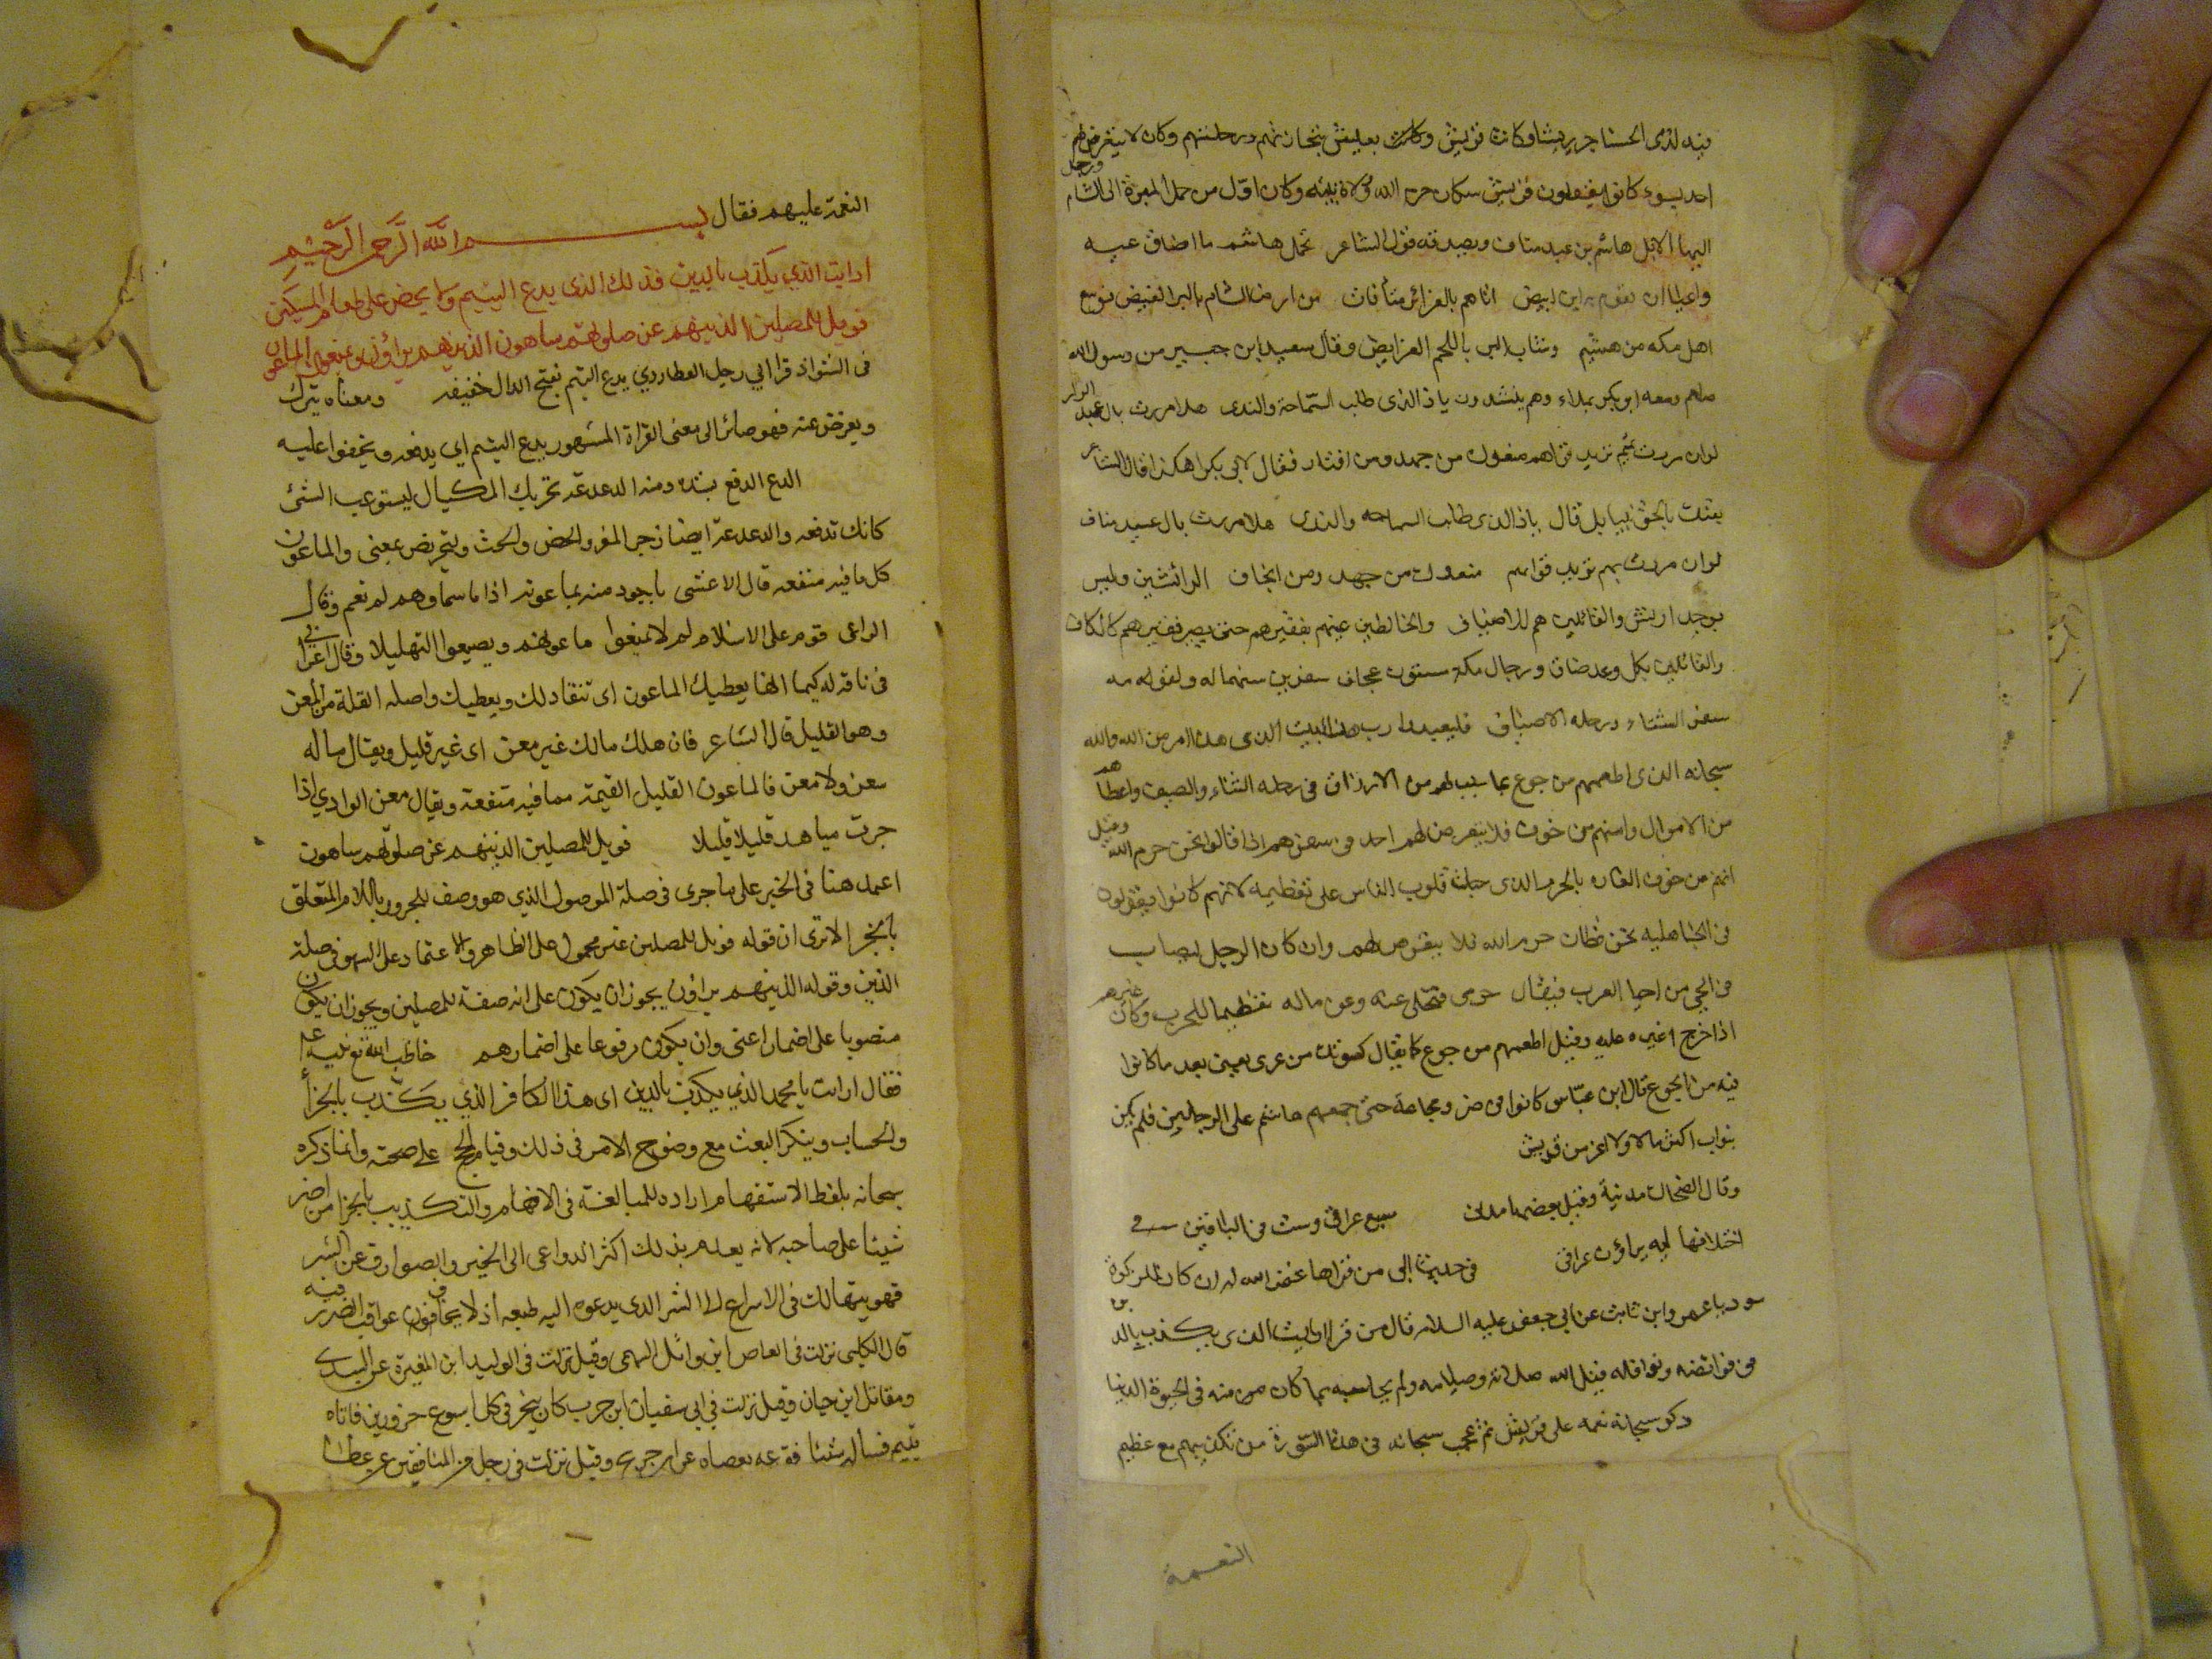 فيه لذى الحسنا جر يشا وكانت قريش وكانت بعليش بتجارتهم ورحلتهم وكان لا يتعرض لهم
احد بسوء كانوا يقولون قريش سكان حرم الله وولاة بيته وكان اول من حمل الميرة الى الشام ورحل
اليها الابل هاشم بن عبد مناف ويصدقه قول الشاعر تحمل هاشم ما اضاق عنه
واعيا ان يقوم به ابن ابيض اتاهم بالغرائر متأقات من ارض الشام بالبر النفيض فوسع
اهل مكه من هشيم وشاب البر باللحم الغرايض وقال سعيد ابن جبير مر رسول الله
صلعم ومعه ابو بكر بملاء وهم ينشدون يا ذا الذى طلب السماحة والندى هلا مررت بال عبد الدار
لو ان مررت بهم تريد قراهم منعوك من جهد ومن اقتار فقال لابى بكر اهكذا قال الشاعر
بعثك بالحق نبيا بل قال يا ذا الذى طلب السماحه والندى هلا مررت بال عبد مناف
لو ان مررت بهم تريد قراهم منعوك من جهد ومن ايجاف الرائشين وليس
يوجد اريش والقائلين هلم للاضياف والخالطين غنيهم بفقيرهم حتى يصير فقيرهم كالكاف
والقائلين بكل وعد صادق ورجال مكة مسنتون عجاف سفرين سنهما له ولقومه
سفر الشتاء ورحلة الاصياف فليعبدوا رب هذا البيت الذى هذا امر من الله
سبحانه الذى اطعمهم من جوع بما سبب لهم من الارزاق فى رحلة الشتاء والصيف واعطاهم
من الاموال وامنهم من خوف فلا يتعرض لهم احد فى سفرهم اذا قالوا نحن حرم الله وقيل
امنهم من خوف الغارة بالحرم الذى جبلت قلوب الناس على تعظيمه لانهم كانوا يقولون
فى الجاهليه نحن قطان حرم الله فلا يتعرض لهم وان كان الرجل ليصاب
فى الحي من احيا العرب فيقال حرمى فتخلى عنه وعن ماله تعظيما للحرم وكان غيرهم
اذا خرج اغيره عليه وقيل اطعمهم من جوع كما يقال كسوتك من عرى يعنى بعد ما كانوا
فيه من الجوع قال ابن عباس كانوا فى ضر ومجاعة حتى جمعهم هاشم على الرحلتين فلم يكن
بنواب اكثر مالا ولا اعز من قريش
وقال الضحاك مدنية وقيل بعضها مدنى سبع عراقى وست فى الباقين
اختلافها ايه يراؤن عراقى فى حديث ابى من قراها غفر الله له ان كان للزكوة
مودبا عمرو ابن ثابت عن ابى جعفر عليه السلام قال من قرا ارايت الذى يكذب بالدين
فى فرائضه ونوافله قبل الله صلاته وصيامه ولم يحاسبه بما كان منه فى الحيوة الدنيا
ذكر سبحانه نعمه على قريش ثم عجب سبحانه فى هذه السورة من تكذيبهم مع عظيم
النعمة
النعمة عليهم فقال بسم الله الرحمن الرحيم
ارايت الذي يكذب بالدين فذلك الذى يدع اليتيم ولا يحض على طعام المسكين
فويل للمصلين الذينهم عن صلوتهم ساهون الذينهم يراؤن ويمنعون الماعون
فى الشواذ قرا ابي رجل العطاردي يدع اليتيم بفتح الدال خفيفه ومعناه يترك
ويعرض عنه فهو صائر الى معنى القراة المشهور يدع اليتيم اي يدفعه ويجفوا عليه
الدع الدفع بشده ومنه الدعدعة تحريك المكيال ليستوعب الشئ
كانك تدفعه والدعدعة ايضا زجر المعز والحض والحث والتحريض بمعنى والماعون
كل ما فيه منفعه قال الاعشى باجود منه بماعونه اذا ما سماوهم لم تغم وقال
الراعى قوم على الاسلام لم لا يمنعوا ماعونهم ويضيعوا التهليلا وقال اعرابي
فى ناقة له كيما انها يعطيك الماعون اى تنقاد لك ويعطيك واصله القلة من المعن
وهو القليل قال الشاعر فان هلك مالك غير معن اى غير قليل ويقال ماله
سعن ولا معن فالماعون القليل القيمة مما فيه منفعة ويقال معن الوادي اذا
جرت مياهه قليلا قليلا فويل للمصلين الذينهم عن صلوتهم ساهون
اعمل هنا فى الخبر على ما جرى فى صلة الموصول الذي هو وصف للمجرور باللام المتعلق
بالخبر الا ترى ان قوله فويل للمصلين غير محمول على الظاهر والاعتماد على السهو فى صلة
الذين وقوله الذينهم يراؤن يجوز ان يكون على انه صفة للمصلين ويجوز ان يكون
منصوبا على اضمار اعنى وان يكون مرفوعا على اضمارهم خاطب الله نبيه
فقال ارايت يا محمد الذي يكذب بالدين اى هذا الكافر الذي يكذب بالجزا
والحساب وينكر البعث مع وضوح الامر فى ذلك وقيام الحجج على صحته وانما ذكره
سبحانه بلفظ الاستفهام اراده للمبالغة فى الافهام والتكذيب بالجزا من اضر
شيئا على صاحبه لانه يعدم بذلك اكثر الدواعى الى الخير والصوارف عن الشر
فهو يتهالك فى الاسراع الى الشر الذى يدعوه اليه طبعه اذ لا يخافون عواقب الضرر فيه
قال الكلبى نزلت فى العاص ابن وائل السهمى وقيل نزلت فى الوليد ابن المغيرة عن السدى
ومقاتل ابن حيان وقيل نزلت فى ابى سفيان ابن حرب كان ينحر فى كل اسبوع جزورين فاتاه
يتيم فساله شيئا فقرعه بعصاه عن ابن جريج وقيل نزلت فى رجل من المنافقين عن عطا